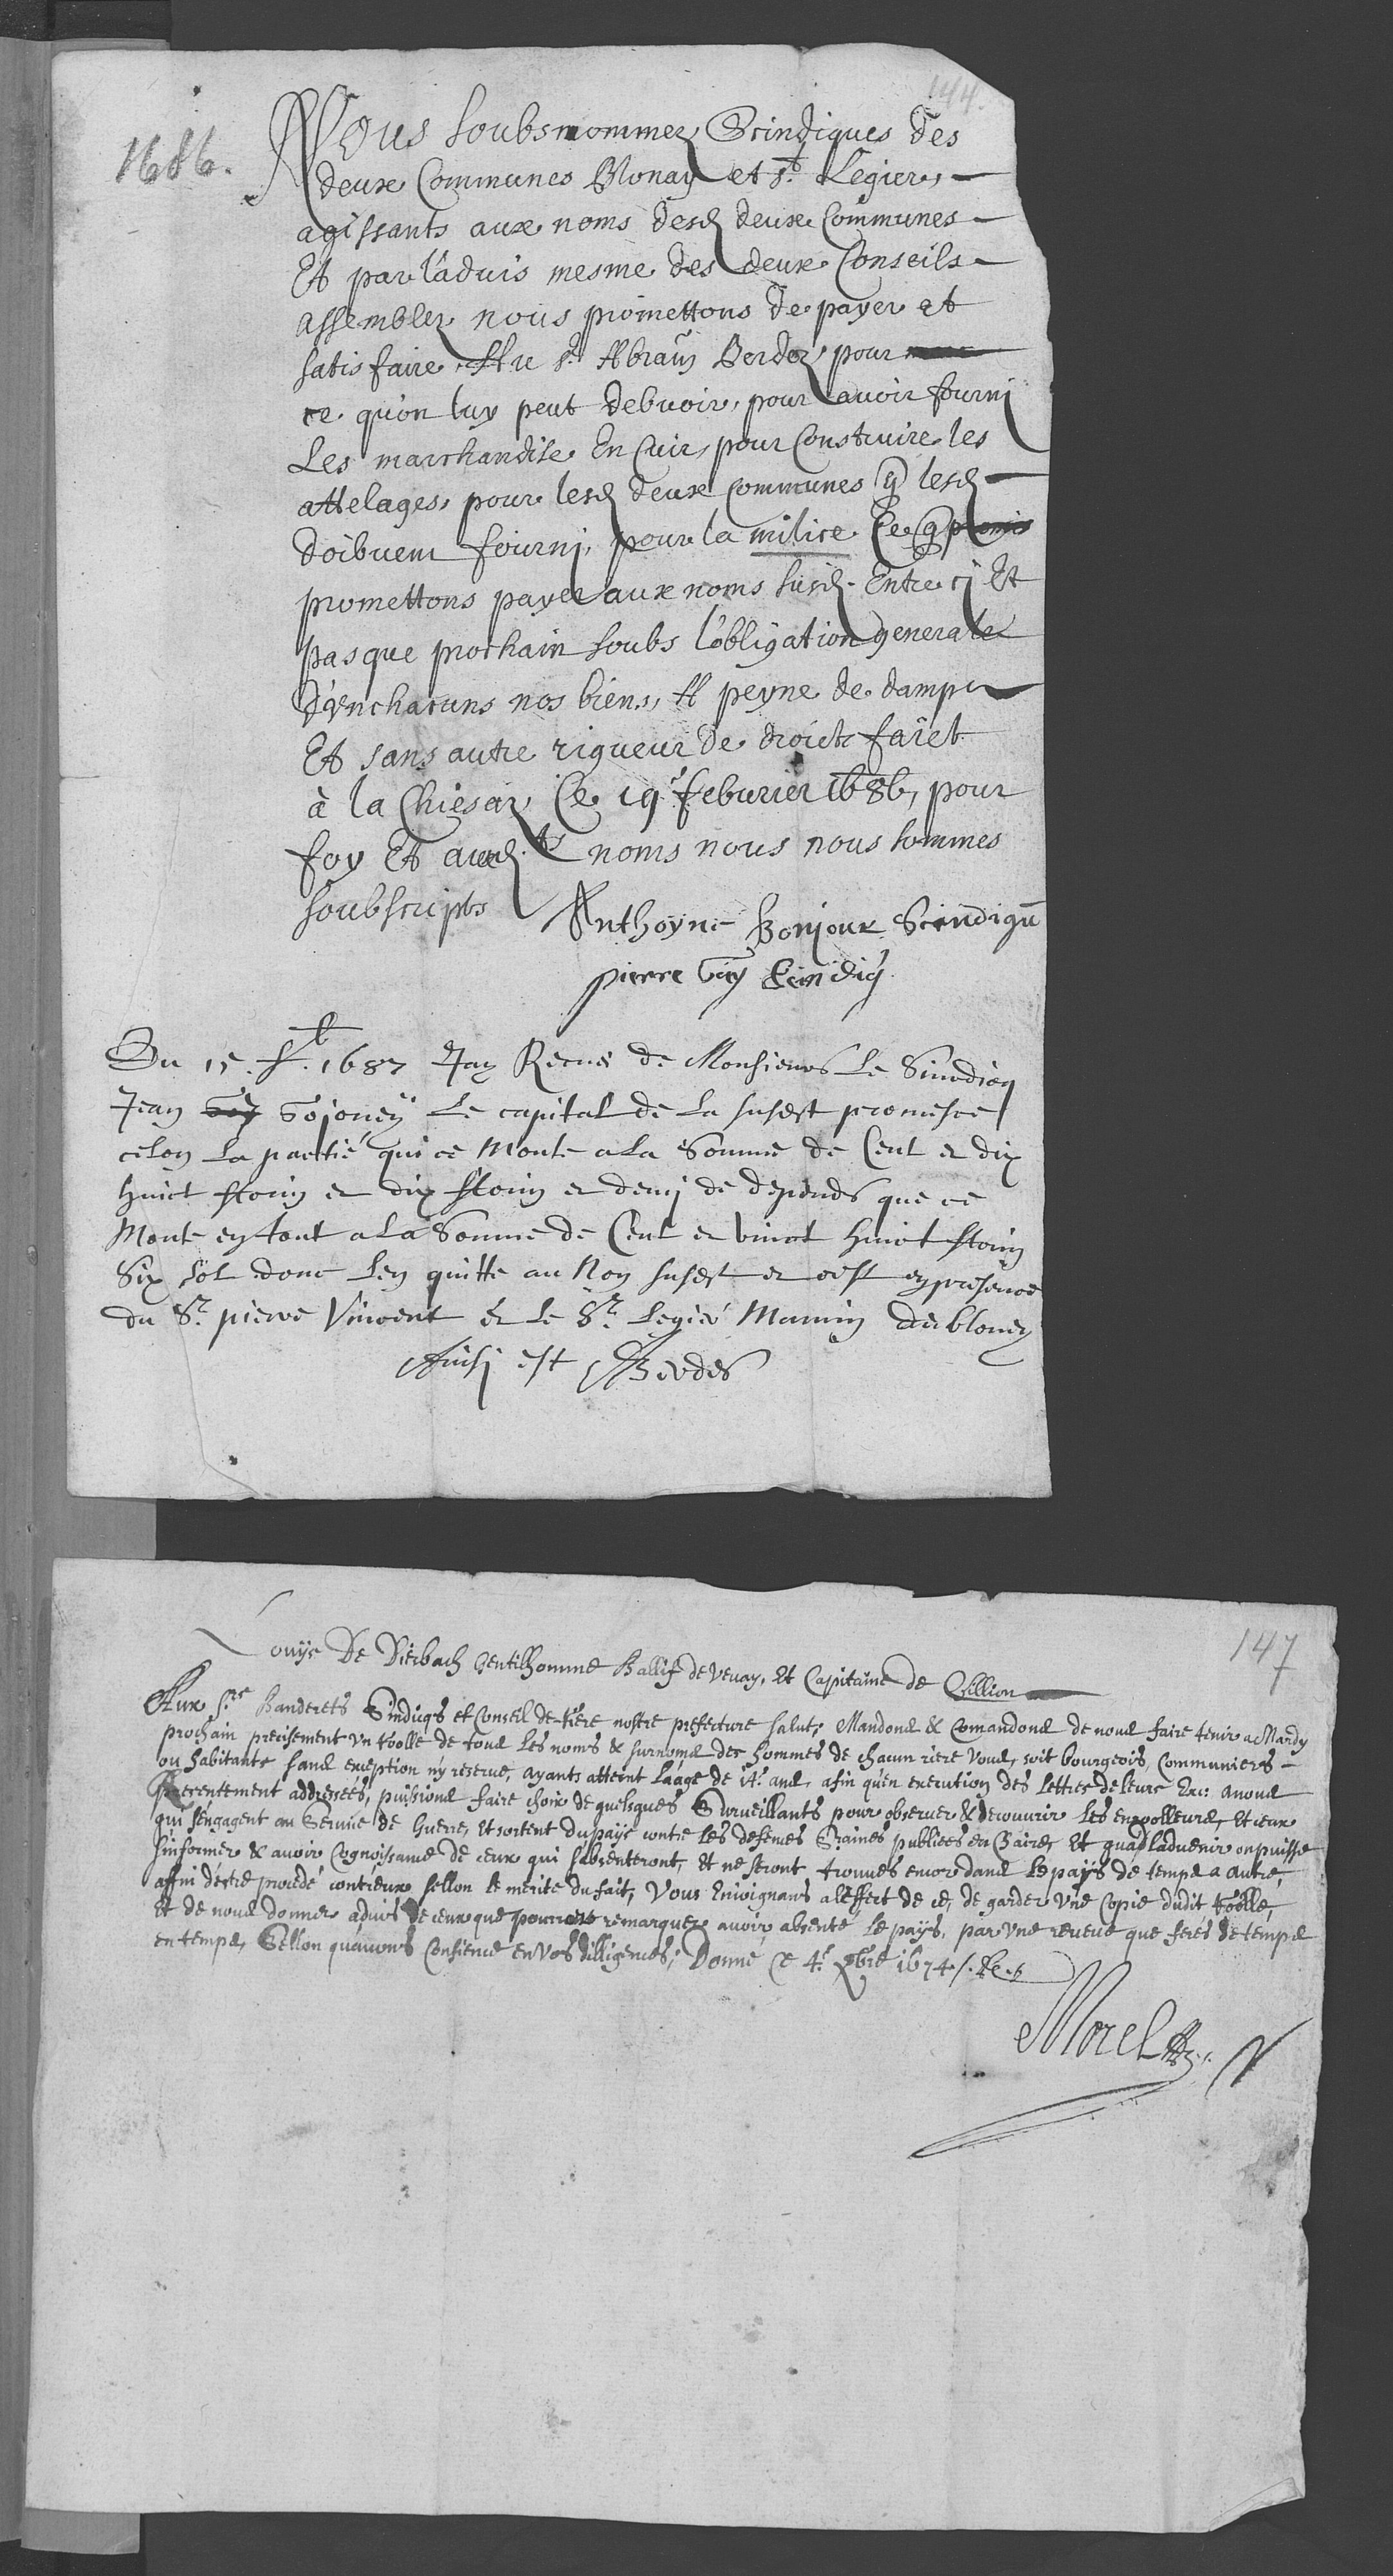 144.
1686.
Nous soubsnommez Scindiques des
deux Communes Blonay et St. Legier,
agissants aux noms desd deux Communes
Et par l'aduis mesme des deux Conseils
assemblez nous promettons de payer et
satisfaire Au Sr. Abram Berdoz pour
ce quon luy peut debuoir, pour avoir fourni
Les marchandise En Cuir, pour Construire les
attelages, pour lesd deux Communes q lesd
doibvent fourni, pour la milice Ce q
promettons payer aux noms susd. Entre cj Et
pasque prochain soubs l'obligation generale
d'vnchacuns nos biens, A peyne de damps
Et sans autre rigueur de droict faict
à la Chiesaz Ce 19e feburier 1686, pour
foy Et auxd. noms nous nous sommes
soubscripts
Anthoyne Bonjour Scindique
pierre Scindiq
Du 15. 1687 Jay Recue de Monsieur Le Sindicq
Jean Le capital de La susdst promesse
celon La partié qui ce Monte a La Somme de Cent et dix
huict florin et dix florin et demj de depends que ce
Monte en tout a La Somme de Cent et vinct huict florin
Six sol donc Len quitte au Non susdst et cest en presence
du Sr. pierre Vincent et le Sr. Legié Mamin de bloney
Ainsj est Berdes
147
Louys De Diesbach Gentilhomme Ballif de Vevay, Et Capitaine de Chillion
Aux Srs Banderets Sindicqs et Conseil de riere nostre prefecture salut, Mandons & Comandons de nous faire tenir a Mardy
prochain precisement vn roolle de tous Les noms & surnoms des hommes de chacun riere Vous, soit bourgeois, Communiers
ou habitants sans exception ny reserve, ayants atteint l'aage de 14. ans, afin qu'en execution des Lettres de leurs Exc: a nous
presentement addressées, puissions faire choix de quelsques Surveillants pour observer & decouvrir Les enroolleurs, Et ceux
qui sengagent au Service de Guerre, Et sortent du pays contre Les defenses publiees en Chaire, Et qua ladvenir on puisse
sinformer & avoir Cognoissance de ceux qui sabsenteront, Et ne seront trouves encor dans Le pays de temps a autre,
affin d'estre procedé contre eux sellon le merite du fait, Vous Enioignans a leffect de ce, de garder Vne Copie dudit roolle,
Et de nous donner aduis de ceux que pourrez remarquer avoir absenté Le pays, par vne reveue que ferés de temps
en temps, Sellon quavons Confience en Vos dilligences, Donné Ce 4e. xbre 1674
Morel